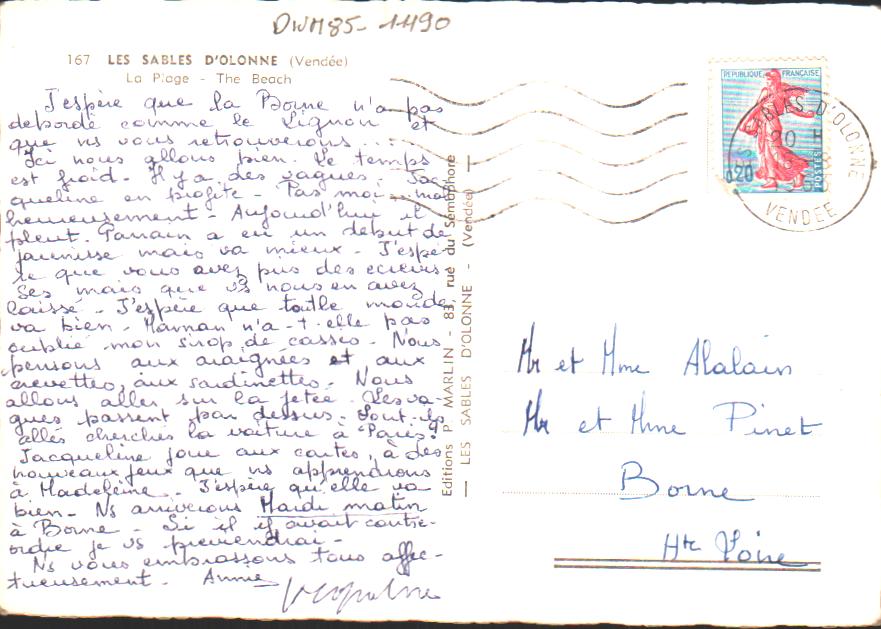 DWM85-1490
167 LES SABLES D'OLONNE (Vendée)
La Plage - The Beach
J'espère que la Borne n'a pas
débordé comme le Lignon et
que ns vous retrouverons ....
Ici nous allons bien. Le temps
est froid. Il y a des vagues. Jac-
queline en profite. Pas moi mal-
heureusement. Aujourd'hui il
pleut. Parrain a eu un début de
jaunisse mais va mieux. J'espè-
re que vous avez pus des écrevis-
ses mais que vs nous en avez
laissé. J'espère que toutle monde
va bien. Maman n'a-t-elle pas
oublié mon sirop de cassis. Nous
pensons aux araignées et aux
crevettes, aux sardinettes. Nous
allons aller sur la jetée. Les va-
gues passent par dessus. Sont-ils
allés cherchés la voiture à Paris?
Jacqueline joue aux cartes, à des
nouveaux jeux que ns apprendrons
à Madeleine. J'espère qu'elle va
bien. Ns arriverons Mardi matin
à Borne. Si il y avait contre-
ordre je vs previendrai.
Ns vous embrassons tous affec-
tueusement. Annie
Jacqueline
Editions P. MARLIN - 83, rue du Sémaphore
— LES SABLES D'OLONNE - (Vendée) —
REPUBLIQUE FRANÇAISE
0,20
POSTES
LES SABLES-D'OLONNE
20 H
VENDEE
Mr et Mme Alalain
Mr et Mme Pinet
Borne
Hte Loire